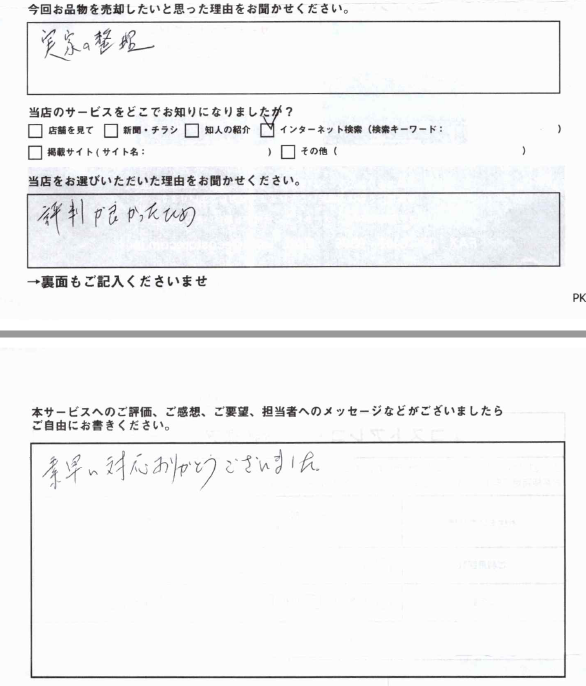 今回お品物を売却したいと思った理由をお聞かせください。
実家の整理
当店のサービスをどこでお知りになりましたか？
□ 店舗を見て □ 新聞・チラシ □ 知人の紹介 ☑ インターネット検索（検索キーワード： ）
□ 掲載サイト（サイト名： ） □ その他（ ）
当店をお選びいただいた理由をお聞かせください。
評判が良かったため
→裏面もご記入くださいませ
PK
本サービスへのご評価、ご感想、ご要望、担当者へのメッセージなどがございましたら
ご自由にお書きください。
素早い対応ありがとうございました。